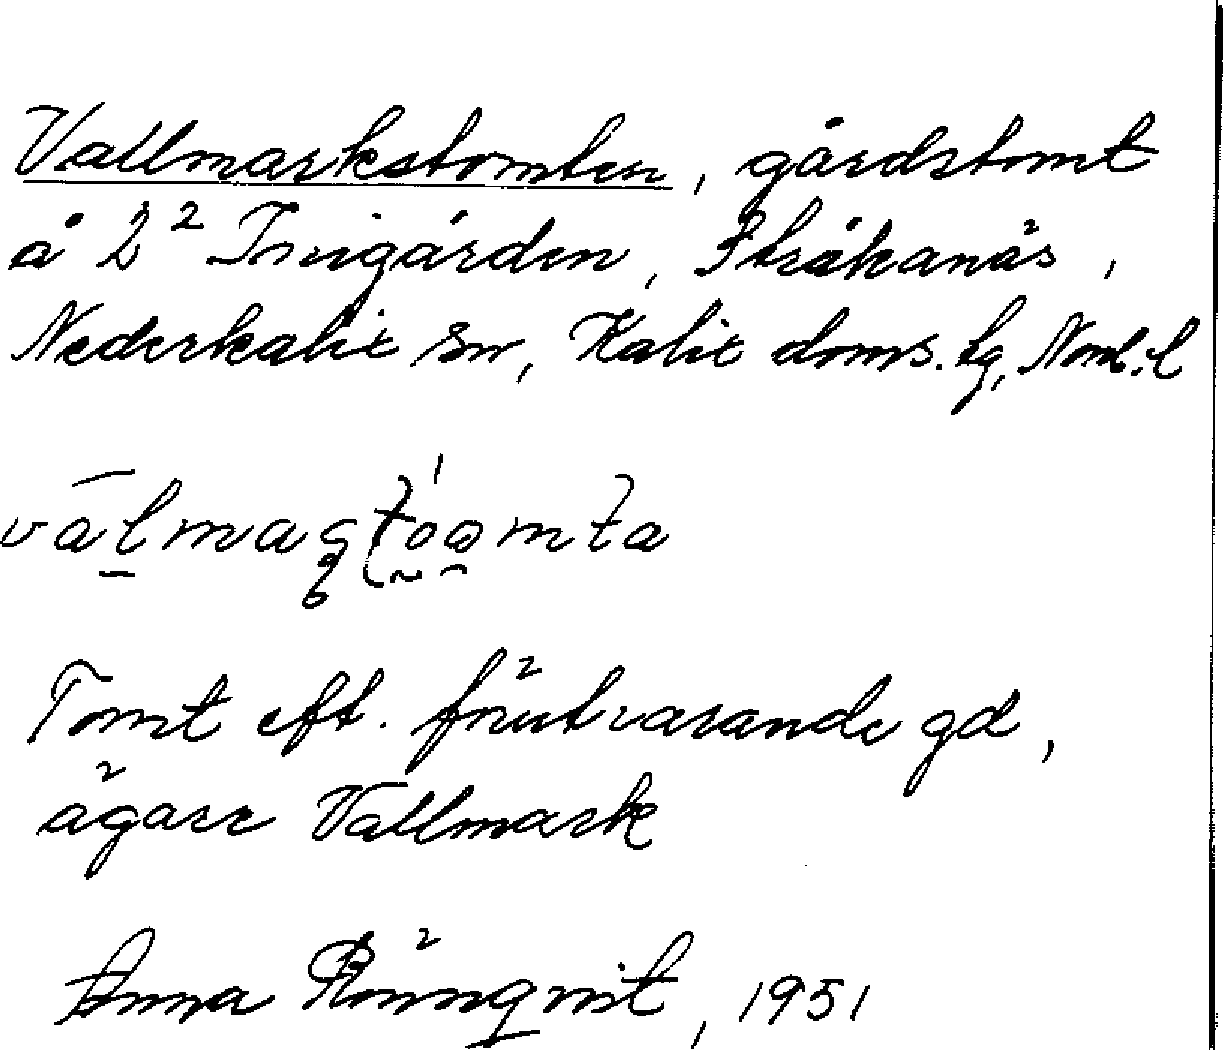 Vallmarkstomten, gårdstomt
å 2² , Stråkanäs,
Nederkalix sn, Kalix doms. tg, Norrb. l
Tomt eft. förutvarande gd,
ägare Vallmark
Anna Rönnqvist, 1951